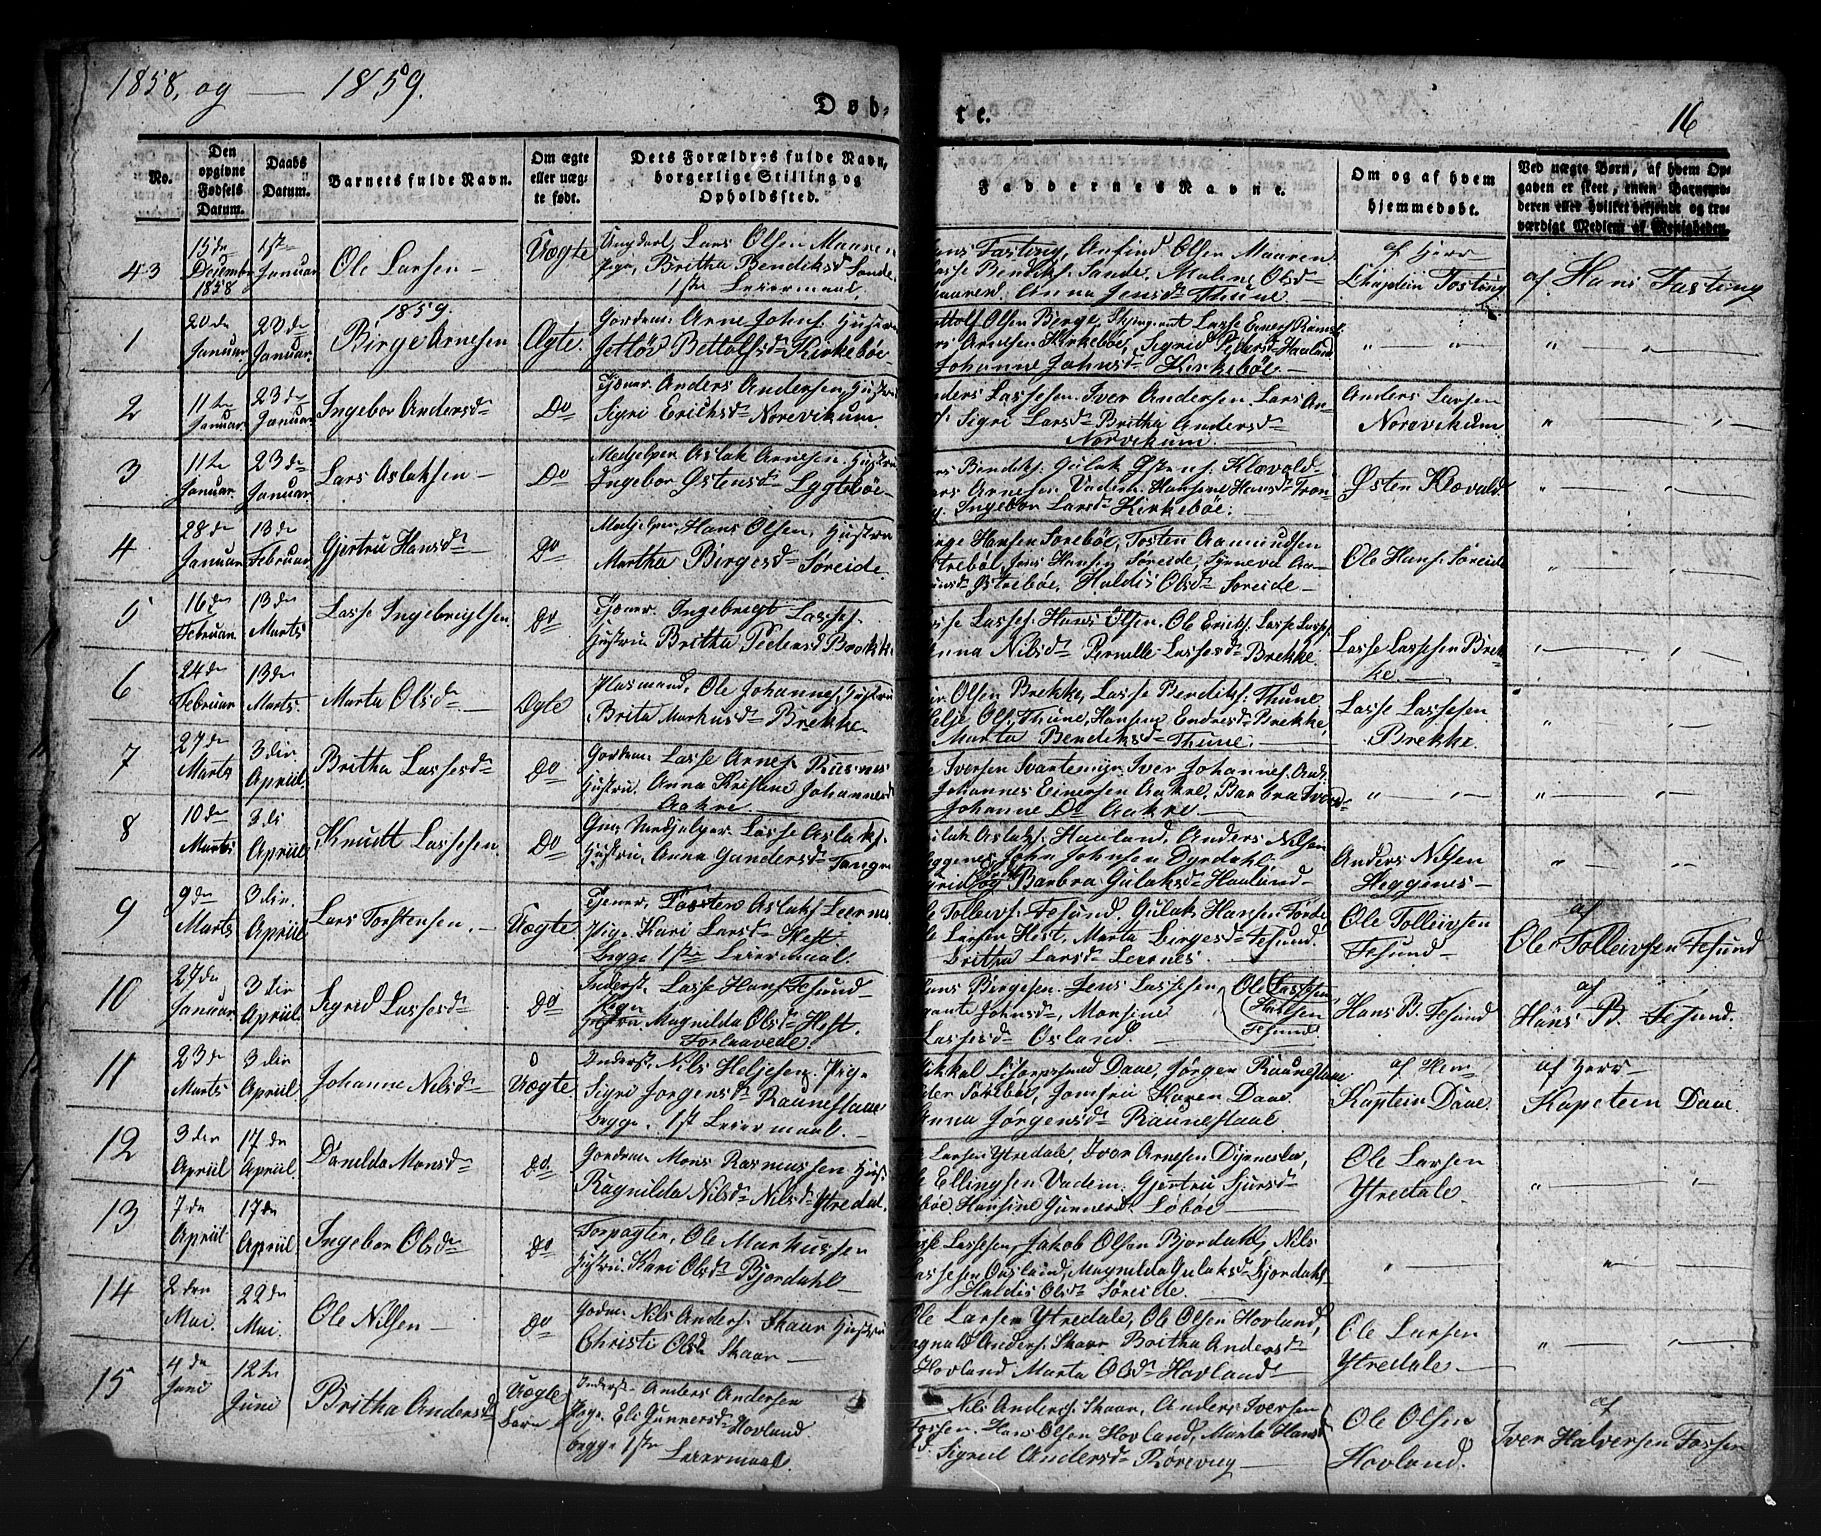 1858, og — 1859.
Døb-
te.
16
No.
Den opgivne Fødsels Datum.
Daabs Datum.
Barnets fulde Navn.
Om ægte eller uægte født.
Dets Forældres fulde Navn, borgerlige Stilling og Opholdssted.
Faddernes Navne.
Om og af hvem hjemmedøbt.
Ved uægte Børn, af hvem Opgaven er skeet, enten Barnemoderen eller hvilket bekjendt og troværdigt Medlem af Menigheden.
43
15de December 1858
1ste Januar
Ole Larsen —
Uægte
Ungkarl, Lars Olsen Maaren
Pige, Britha Bendiksd Sande
1ste Leiermaal.
Hans Fasting, Anfind Olsen Maaren
Lasse Bendiks. Sande, Maline Olsd
Maaren Anna Jensd Thune
af Herr
Chaplain Fasting
af Hans Fasting
1859.
1
20de Januar
23de Januar
Birge Arnesen
Ægte.
Gordem: Arne Johns. Hustru
Bottolfsd Kirkebøe
Bottolf Olsen Berge,
Arnesen Kirkebøe, Sigrid Pedersd Haaland
Johanne Johnsd Kirkebøe —
2
11te Januar
23de Januar
Ingebor Andersd
Do
Tjener. Anders Andersen Hustru
Sigri Erichsd Norevikum
Anders Lassesen. Iver Andersen. Lars An-
Sigri Larsd Britha Andersd
Norvikum.
Anders Larsen
Norevikum
3
11te Januar
23de Januar
Lars Aslaksen —
Do
Medjelper Aslak Arnesen. Hustru
Ingebor Østensd Lygtebøe
Lars Bendiks. Gulak Østens. Klævold
Lars Arnesen Vadem. Hansine Hansd
Ingebor Larsd Kirkebøe.
Østen Klævold
4
28de Januar
13de Februar
Gjertru Hansd
Do
Medjelper, Hans Olsen, Hustru
Martha Birgesd Søreide.
Birge Hansen Torebøe, Tosten Aamundsen
Østrebøe, Jens Hansen Søreide, Synneva Aa-
mundsd Østrebøe, Haldis Olsd Søreide —
Ole Hans. Søreide
5
16de Februar
13de Marts
Lasse Ingebrigtsen
Do
Tjener. Ingebrigt Lasses.
Hustru Britha Pedersd Brekke
Lasse Lasses. Hans Olsen. Ole Eriks. Lasse Lasses.
Anna Nilsd Pernille Lassesd Brekke.
Lasse Lassesen Brek-
ke.
6
24de Februar
13de Marts.
Marta Olsd
Ægte
Plasmand, Ole Johannes. Hustru
Brita Markusd Brekke.
Olsen Brekke, Lasse Bendiks. Thune
Helje Ols. Thune, Hansine Endresd Brekke,
Marta Bendiksd Thune.
Lasse Lassesen
Brekke.
7
27de Marts
3die Apriil
Britha Lassesd
Do
Gordem: Lasse Arnes.
Hustru. Anna Kristine Johannesd
Aakre.
Iversen Svartemyr. Iver Johannes.
Johannes Einersen Aakre, Barbra Iversd
Johanne Do Aakre.
8
10de Marts
3di Apriil
Knudt Lassesen
Do
Medjelper. Lasse Aslaks.
Hustru. Anna Gundersd Tangen
Aslak Aslaks. Haaland, Anders Nilsen
Heggenes John Johnsen Dyrdahl
og Barbra Gulaksd Haaland —
Anders Nilsen
Heggenes —
9
9de Marts
3die Apriil
Lars Torstensen. —
Uægte.
Tjener, Tosten Aslaks Leernes
Pige. Kari Larsd Hest
begge 1ste Leiermaal.
Ole Tolleivs. Fesund. Gulak Hansen Førde
Ole Larsen Hest, Marta Birgesd Fesund.
Britha Larsd Leernes.
Ole Tolleivsen
Fesund —
af
Ole Tolleivsen Fesund
10
27de Januar
3die Apriil
Sigrid Lassesd
Do
Inderst. Lasse Hans. Fesund —
Pige
Hustru Magnilda Olsd Hest.
Forlaavede.
Hans Birgesen. Jens Lassesen
Johnsd, Monsine
Lassesd Osland. —
Ole Lassesen
Hansen
Fesund.
Hans B. Fesund
af
Hans B. Fesund.
11
23de Marts
3die Apriil
Johanne Nilsd
Uægte
Inderst, Nils Heljesen. Pige
Sigri Jørgensd Raunestaae
begge. 1st Leiermaal. —
Mikkal Daae, Jørgen Raunestaae
Torebøe, Jomfru Karen Daae.
Anna Jørgensd Raunestaae
af Herr
Kaptein Daae.
af Herr
Kaptein Daae.
12
3die Apriil
17de Apriil.
Danilda Monsd
Do
Gordem: Mons Rasmussen Hus.
Ragnilda Nilsd Nilsd Ytredal.
Ole Larsen Ytredale, Iver Arnesen
Ellingsen Vadem. Gjertru Sjursd
Hansine Gunnersd Løbøe —
Ole Larsen
Ytredale.
13
7de Apriil
17de Apriil
Ingebor Olsd
Do
Forpagter, Ole Markussen
Hustru Kari Olsd Bjordahl
Lasse Lassesen Jakob Olsen Bjordahl Nils
Lassesen Osland, Magnilda Gulaksd Bjordahl
Haldis Olsd Søreide.
14
2den Mai.
22de Mai.
Ole Nilsen —
Do
Gordm: Nils Anders. Skaar Hustru
Christi Olsd Skaar —
Ole Larsen Ytredale, Ole Olsen Hovland,
Anders. Skaar Britha Andersd
Hovland Marta Olsd Hovland
Ole Larsen
Ytredale —
15
4de Juni
12te Juni
Britha Andersd
Uægte Barn —
Inderst — Anders Andersen
Pige. Eli Gunnersd Hovland
begge 1ste Leiermaal.
Nils Anders. Skaar, Anders Iversen
Fossen. Hans Olsen Hovland, Marta Hansd
Do. Sigrid Andersd Rørevig —
Ole Olsen
Hovland.
af
Iver Halversen Fossen